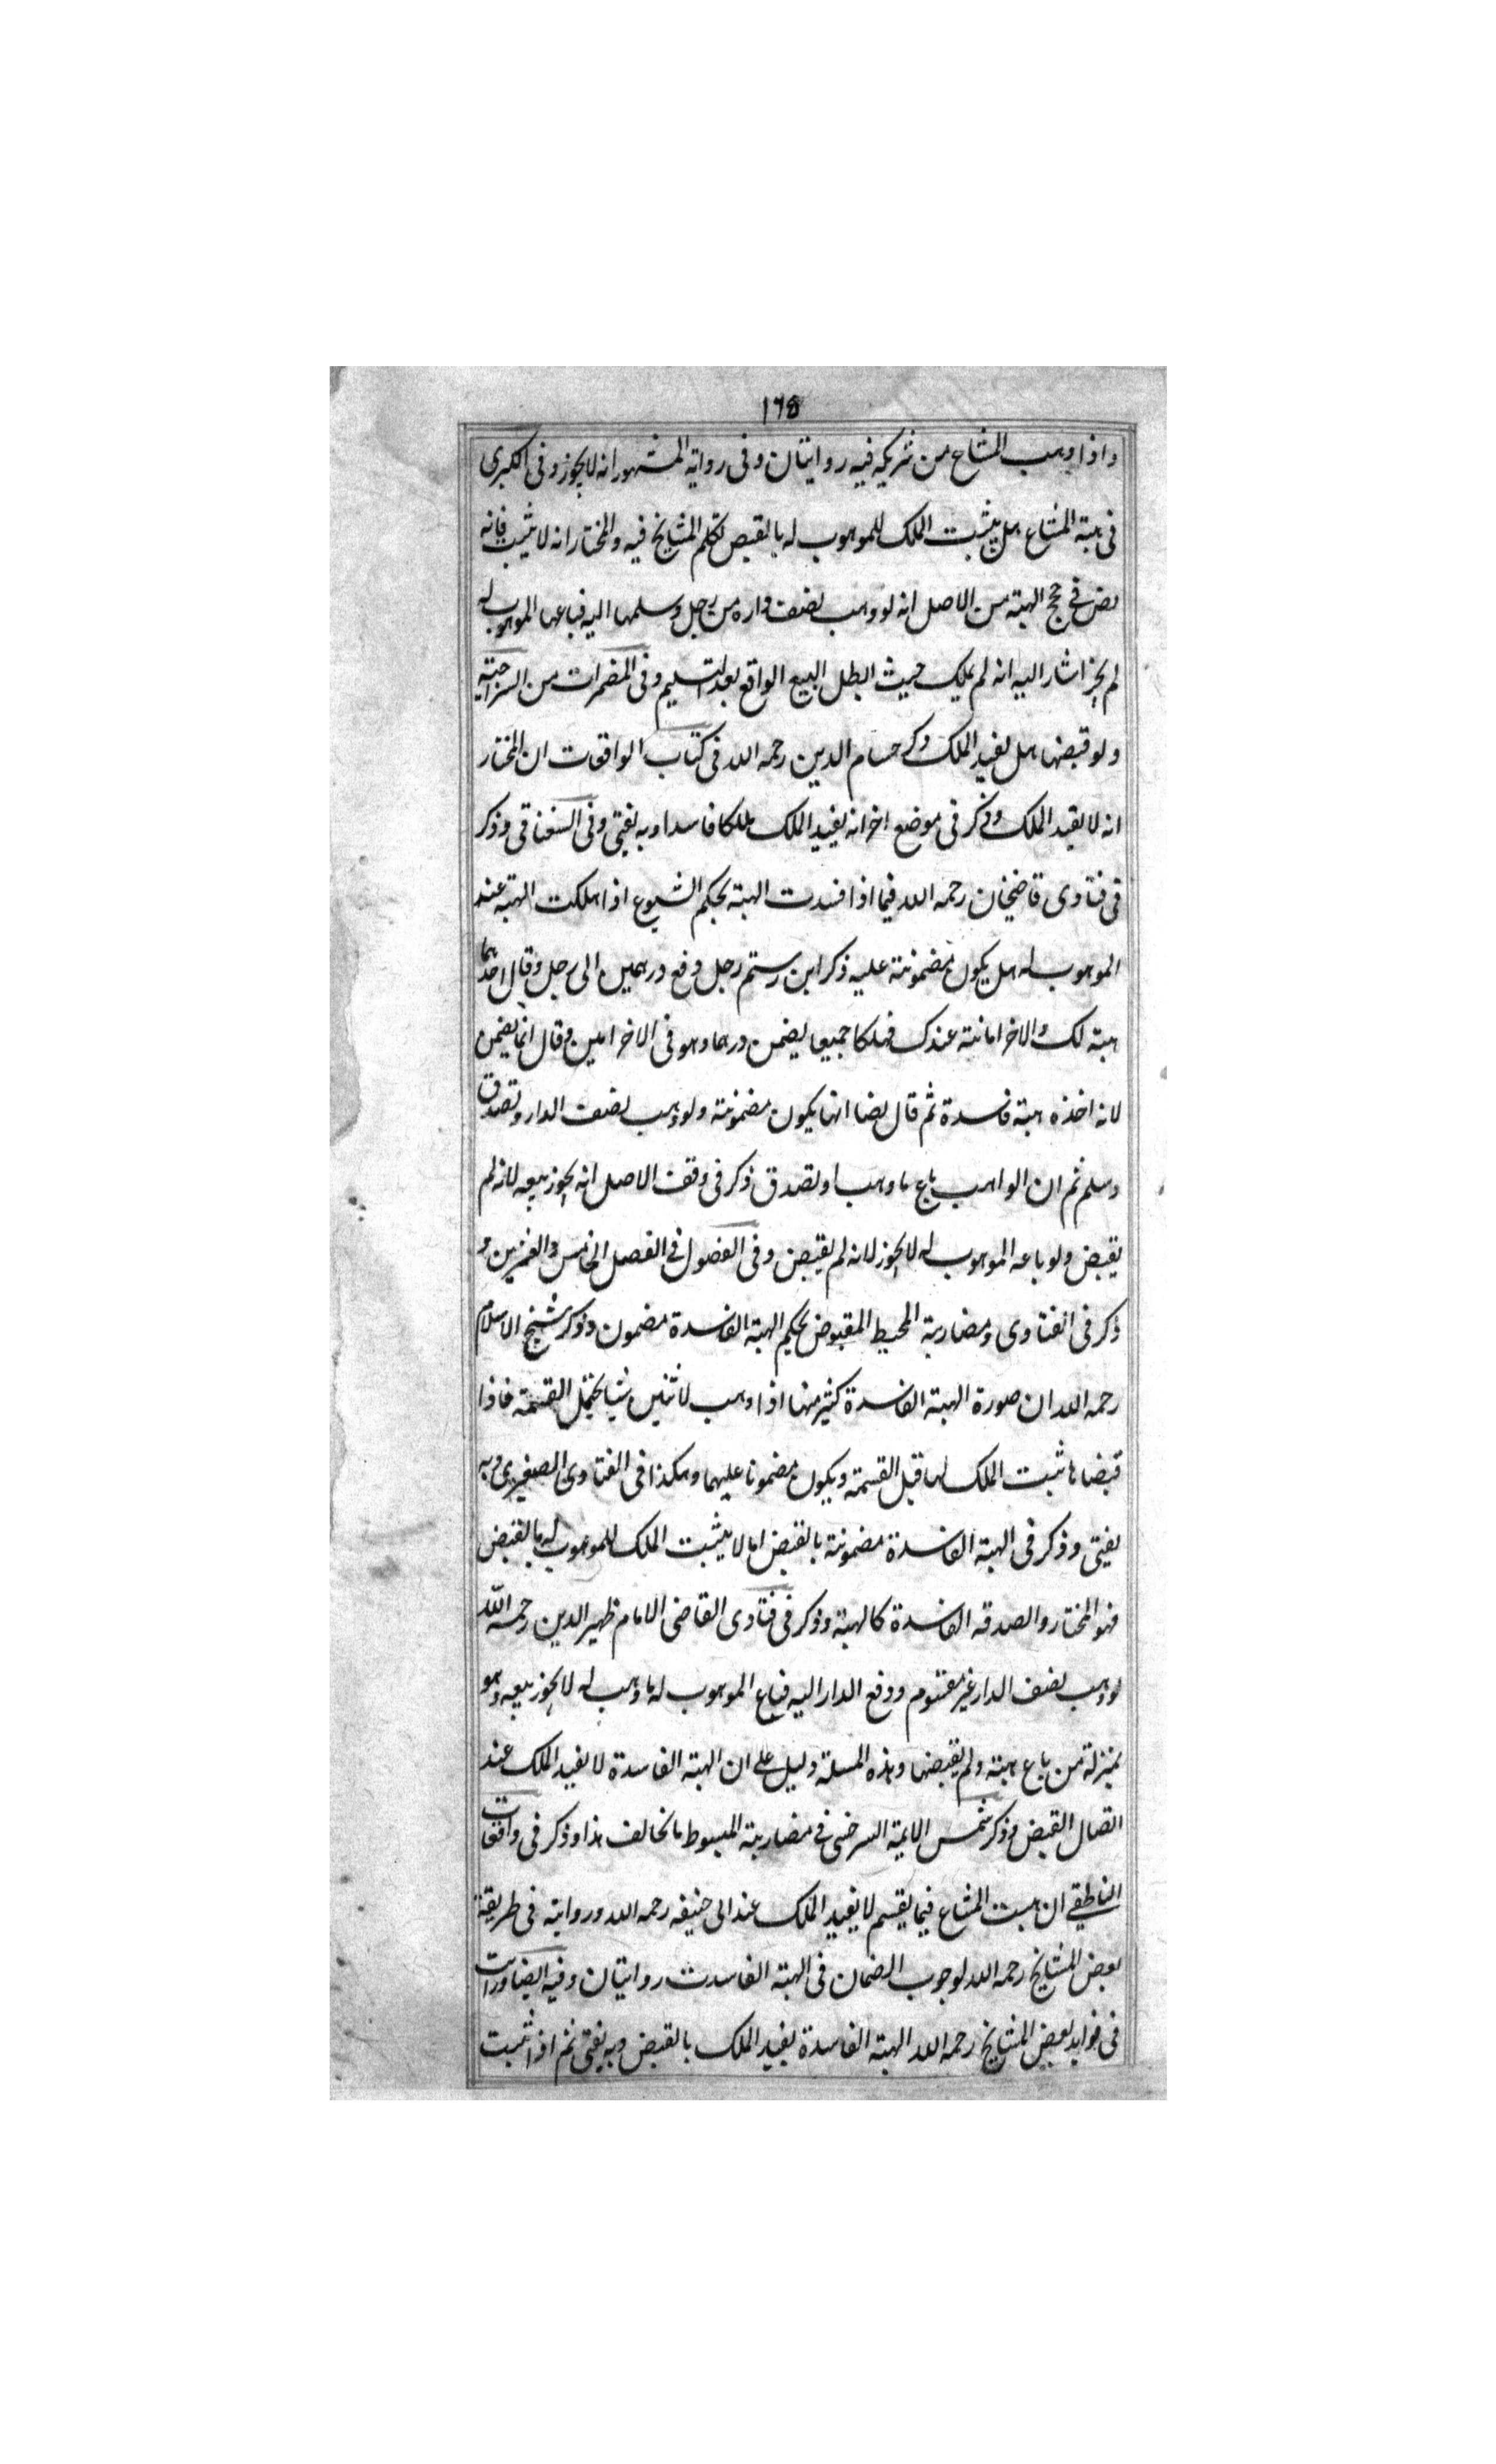 ١٦٥
واذا وهب المشاع من شريكه فيه روايتان وفى رواية المشهور انه لايجوز وفى الكبرى
فى هبة المشاع هل يثبت الملك للموهوب له بالقبض تكلم المشايخ فيه والمختار انه لا يثبت فانه
نص فى حج الهبة من الاصل انه لو وهب نصف داره من رجل وسلمها اليه فباعها الموهوب له
لم يجز اشار اليه انه لم يملك حيث ابطل البيع الواقع بعد التسليم وفى المضمرات من السراجية
ولو قبضها هل يفيد الملك ذكر حسام الدين رحمه الله فى كتاب الواقعات ان المختار
انه لا يفيد الملك وذكر فى موضع اخر انه يفيد الملك ملكا فاسدا وبه يفتى وفى السغناقى وذكر
فى فتاوى قاضيخان رحمه الله فيما اذا فسدت الهبة بحكم الشيوع اذا هلكت الهبة عند
الموهوب له هل يكون مضمونة عليه ذكر ابن رستم رجل دفع درهمين الى رجل وقال احدهما
هبة لك والاخر امانة عندك فهلكا جميعا يضمن درهما وهو فى الاخر امين وقال انما يضمن
لانه اخذه هبة فاسدة ثم قال نصا انها يكون مضمونة ولو وهب نصف الدار وتصدق
وسلم ثم ان الواهب باع ما وهب او تصدق ذكر فى وقف الاصل انه يجوز بيعه لانه لم
يقبض ولو باعه الموهوب له لايجوز لانه لم يقبض وفى الفصول فى الفصل الخامس والعشرين و
ذكر فى الفتاوى ومضاربة المحيط المقبوض بحكم الهبة الفاسدة مضمون وذكر شيخ الاسلام
رحمه الله ان صورة الهبة الفاسدة كثير منها اذا وهب لاثنين شيئا يحتمل القسمة فاذا
قبضا ها ثبت الملك لهما قبل القسمة ويكون مضمونا عليهما وهكذا فى الفتاوى الصغرى وبه
يفتى وذكر فى الهبة الفاسدة مضمونة بالقبض اما لا يثبت الملك للموهوب له بالقبض
فهو المختار والصدقه الفاسدة كالهبة وذكر فى فتاوى القاضى الامام ظهير الدين رحمه الله
لو وهب نصف الدار غير مقسوم ودفع الدار اليه فباع الموهوب له ما وهب له لايجوز بيعه وهو
بمنزلة من باع هبته ولم يقبضها وهذه المسئلة دليل على ان الهبة الفاسدة لا يفيد الملك عند
اتصال القبض وذكر شمس الايمة السرخسى فى مضاربة المبسوط ما يخالف هذا وذكر فى واقعات
الناطفى ان هبت المشاع فيما يقسم لا يفيد الملك عند ابى حنيفه رحمه الله ورواية فى طريقة
بعض المشايخ رحمه الله لوجوب الضمان فى الهبة الفاسدت روايتان وفيه ايضا ورات
فى فوايد بعض المشايخ رحمه الله الهبة الفاسدة يفيد الملك بالقبض وبه يفتى ثم اذا ثبت